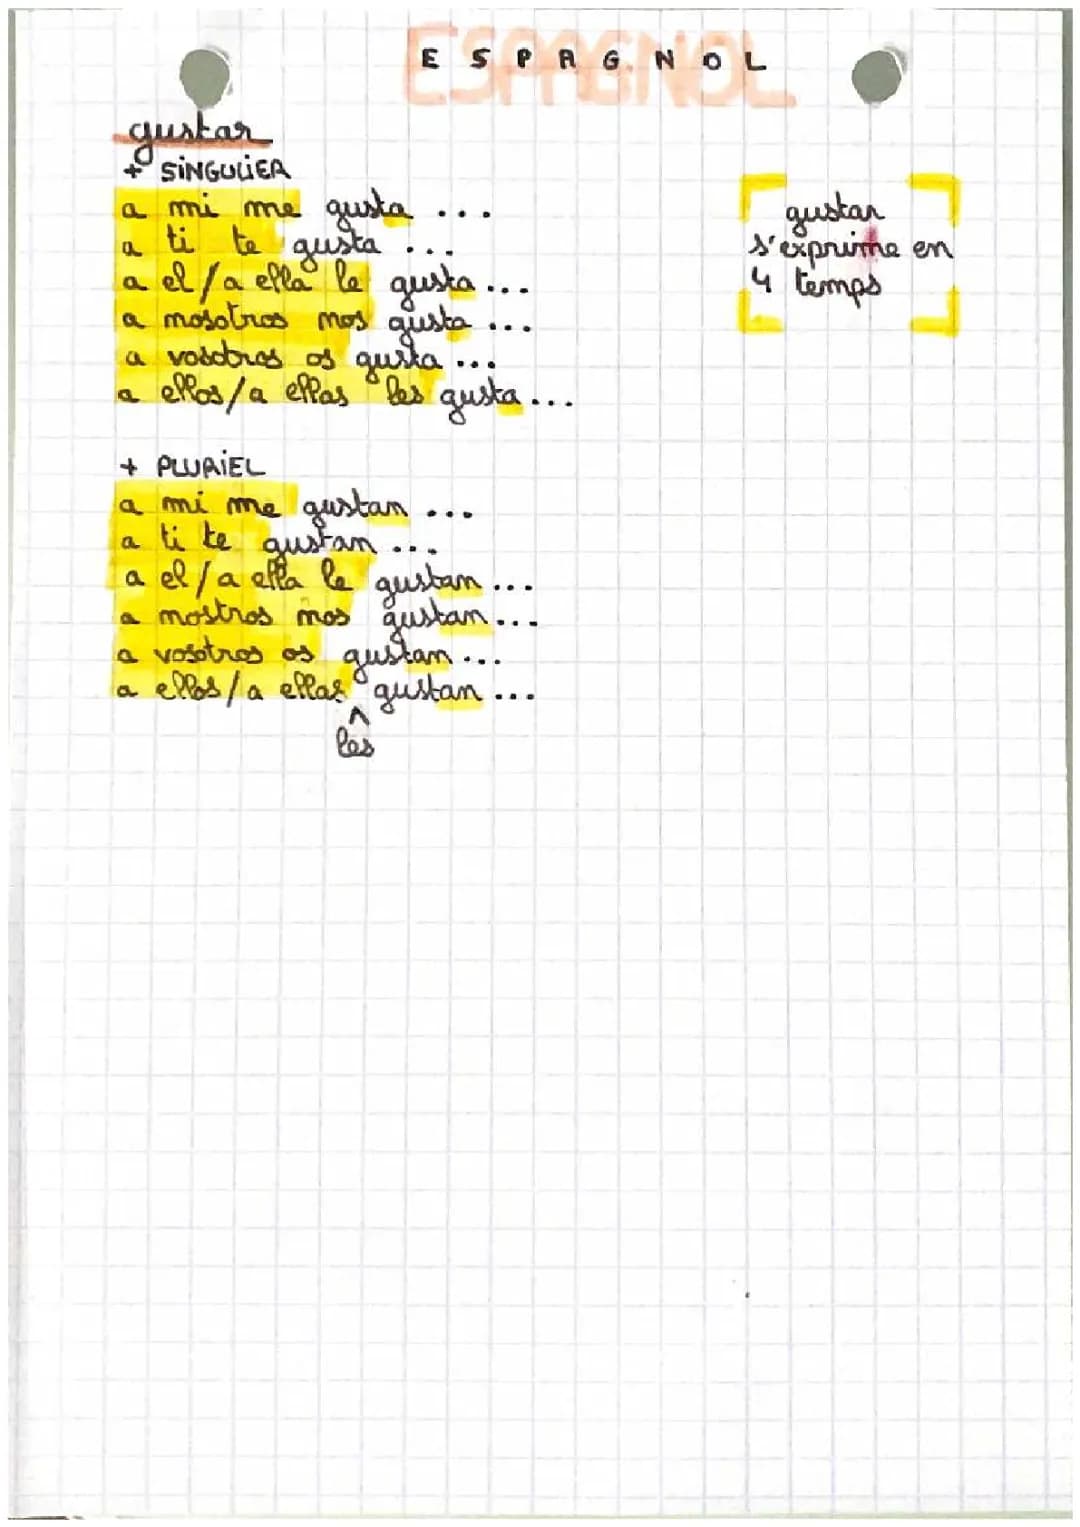 ESPAGNOL
gustar
+ SINGULIER
a mi me gusta ...
a ti te gusta ...
a el/a ella le gusta ...
a nosotros nos gusta ...
a vosotros os gusta ...
a ellos/a ellas les gusta ...
+ PLURIEL
a mi me gustan ...
a ti te gustan ...
a el/a ella le gustan ...
a nostros nos gustan ...
a vosotros os gustan ...
a ellos/a ellas gustan ...
^
les
gustar
s'exprime en
4 temps